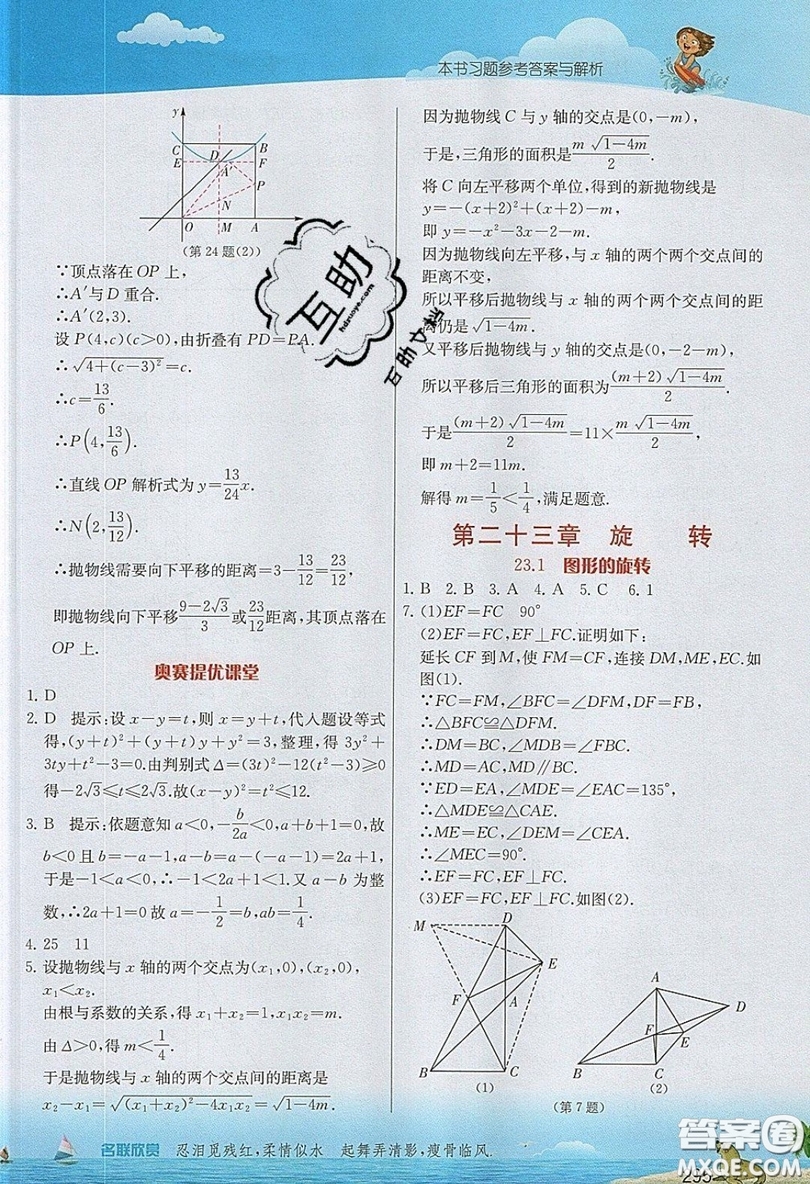 本书习题参考答案与解析
y
C
B
D
E
A′
F
P
N
O
M
A
x
(第24题(2))
∵顶点落在OP上,
∴A′与D重合.
∴A′(2,3).
设P(4,c)(c>0),由折叠有PD=PA.
∴√(4+(c-3)²)=c.
∴c=13/6.
∴P(4,13/6).
∴直线OP解析式为y=13/24x.
∴N(2,13/12).
∴抛物线需要向下平移的距离=3-13/12=23/12,
即抛物线向下平移(9-2√3)/3或23/12距离,其顶点落在
OP上.
奥赛提优课堂
1. D
2. D 提示:设x-y=t,则x=y+t,代入题设等式
得,(y+t)²+(y+t)y+y²=3,整理,得3y²+
3ty+t²-3=0.由判别式Δ=(3t)²-12(t²-3)≥0
得-2√3≤t≤2√3.故(x-y)²=t²≤12.
3. B 提示:依题意知a<0,-b/2a<0,a+b+1=0,故
b<0且b=-a-1,a-b=a-(-a-1)=2a+1,
于是-1<a<0,∴-1<2a+1<1.又a-b为整
数,∴2a+1=0故a=-1/2=b,ab=1/4.
4. 25 11
5. 设抛物线与x轴的两个交点为(x₁,0),(x₂,0),
x₁<x₂.
由根与系数的关系,得x₁+x₂=1,x₁x₂=m.
由Δ>0,得m<1/4.
于是抛物线与x轴的两个交点间的距离是
x₂-x₁=√((x₁+x₂)²-4x₁x₂)=√(1-4m).
因为抛物线C与y轴的交点是(0,-m),
于是,三角形的面积是m√(1-4m)/2.
将C向左平移两个单位,得到的新抛物线是
y=-(x+2)²+(x+2)-m,
即y=-x²-3x-2-m.
因为抛物线向左平移,与x轴的两个两个交点间的
距离不变,
所以平移后抛物线与x轴的两个两个交点间的距
离仍是√(1-4m).
又平移后抛物线与y轴的交点是(0,-2-m),
所以平移后三角形的面积为(m+2)√(1-4m)/2.
于是(m+2)√(1-4m)/2=11×m√(1-4m)/2,
即m+2=11m.
解得m=1/5<1/4,满足题意.
第二十三章 旋 转
23.1 图形的旋转
1. B 2. B 3. A 4. A 5. C 6. 1
7. (1)EF=FC 90°
(2)EF=FC,EF⊥FC.证明如下:
延长CF到M,使FM=CF,连接DM,ME,EC.如
图(1).
∵FC=FM,∠BFC=∠DFM,DF=FB,
∴△BFC≌△DFM.
∴DM=BC,∠MDB=∠FBC.
∴MD=AC,MD∥BC.
∵ED=EA,∠MDE=∠EAC=135°,
∴△MDE≌△CAE.
∴ME=EC,∠DEM=∠CEA.
∴∠MEC=90°.
∴EF=FC,EF⊥FC.
(3)EF=FC,EF⊥FC.如图(2).
M
D
E
F
A
B
C
(1)
A
D
F
E
B
C
(2)
(第7题)
互助
hdzuoye.com
互助作业
名联欣赏 忍泪觅残红,柔情似水 起舞弄清影,瘦骨临风.
295
答案圈
MXQE.COM